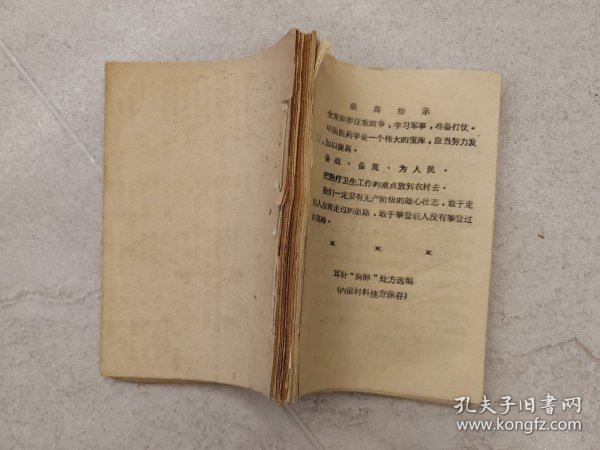 最 高 指 示
全党都要注重战争，学习军事，准备打仗。
中国医药学是一个伟大的宝库，应当努力发
，加以提高。
备战、备荒、为人民。
把医疗卫生工作的重点放到农村去。
我们一定要有无产阶级的雄心壮志，敢于走
前人没有走过的道路，敢于攀登前人没有攀登过
的高峰。
耳针“麻醉”处方选编
(内部材料注意保存)
孔夫子旧书网
www.kongfz.com